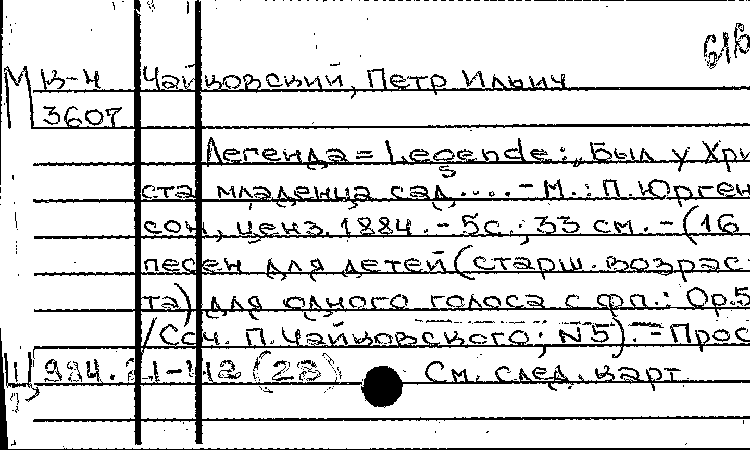 616
М В-Ч Чайковский, Петр Ильич
3607
Легенда = Legende: „Был у Хри
ста младенца сад....- М.: П. Юрген
сон, ценз. 1884. - 5с.; 33 см. - (16
песен для детей (старш. возрас-
та) для одного голоса с фп.: Op.5
/Соч. П. Чайковского; N5). - Прос
См. след. карт